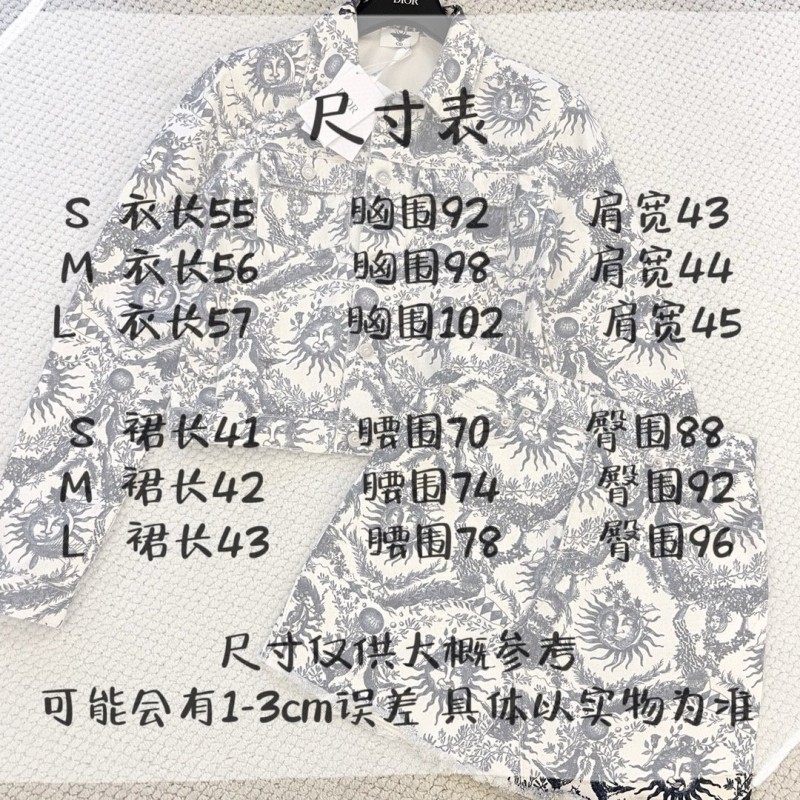 DIOR
DIOR
尺寸表
S 衣长55 胸围92 肩宽43
M 衣长56 胸围98 肩宽44
L 衣长57 胸围102 肩宽45
S 裙长41 腰围70 臀围88
M 裙长42 腰围74 臀围92
L 裙长43 腰围78 臀围96
尺寸仅供大概参考
可能会有1-3cm误差 具体以实物为准